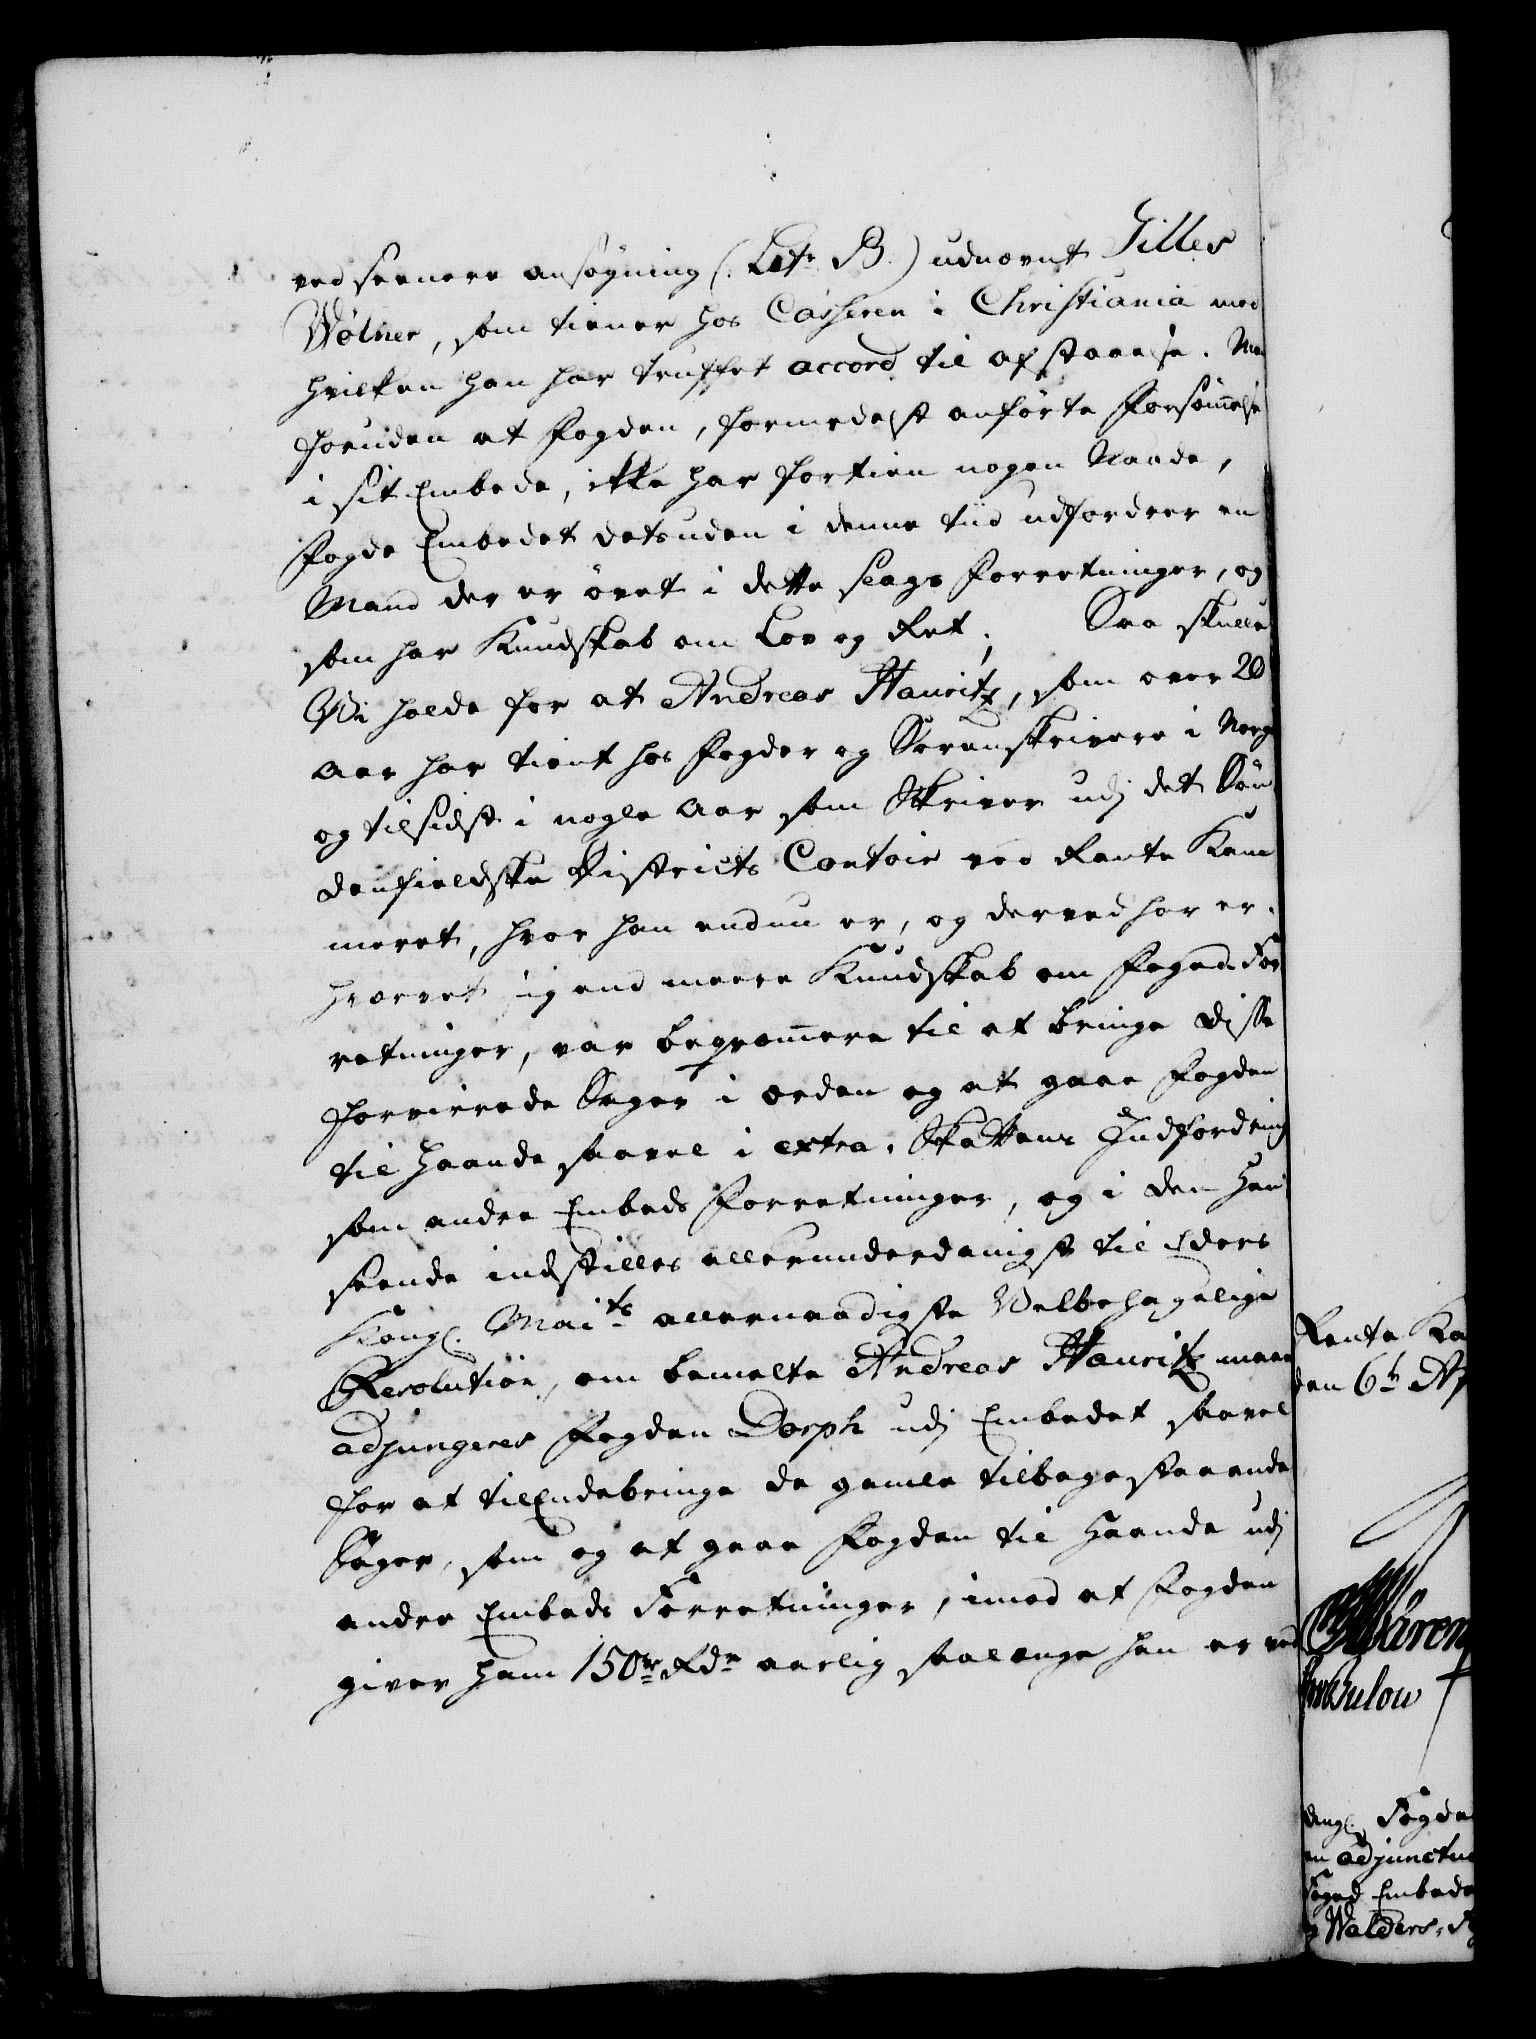 ved seenere ansøgning (: Litr. B.) udnævnt Gilles
Wølner, som tiener hos Casseren i Christiania med
hvilken han har truffet accord til afstaaelse. Men
foruden at Fogden, formedelst anførte Forsømmelse
i sit Embede, ikke har fortient nogen Naade,
Fogde Embedet detsuden i denne tiid udfordrer en
Mand der er øvet i dette slags Forretninger, og
som har Kundskab om Lov og Ret; Saa skulle
Vi holde for at Andreas Hauritz, som over 20
Aar har tient hos Fogder og Sorenskrivere i Norge
og tilsidst i nogle Aar som Skriver udj det Søn-
denfieldske Districts Contoir ved Rente Kam-
meret, hvor han endnu er, og derved har er-
hvervet sig end meere Kundskab om Foged For-
retninger, var beqvemmere til at bringe disse
forvirrede Sager i orden og at gaae Fogden
til Haande saavel i extra-Skattens Indfordring
som andre Embeds Forretninger, og i den Hen-
seende indstilles allerunderdanigst til Eders
Kongl. Maits allernaadigste Velbehagelige
Resolution, om bemelte Andreas Hauritz maae
adjungeres Fogden Dorph udj Embedet saavel
for at tilEndebringe de gamle tilbagestaaende
Sager, som og at gaae Fogden til Haande udj
andre Embeds Forretninger, imod at Fogden
giver ham 150 Rdr aarlig saalænge han er ved
Rente Ka
den 6te Ap
Bulow
Fogde
adjunctus
Foged Embede
Walders